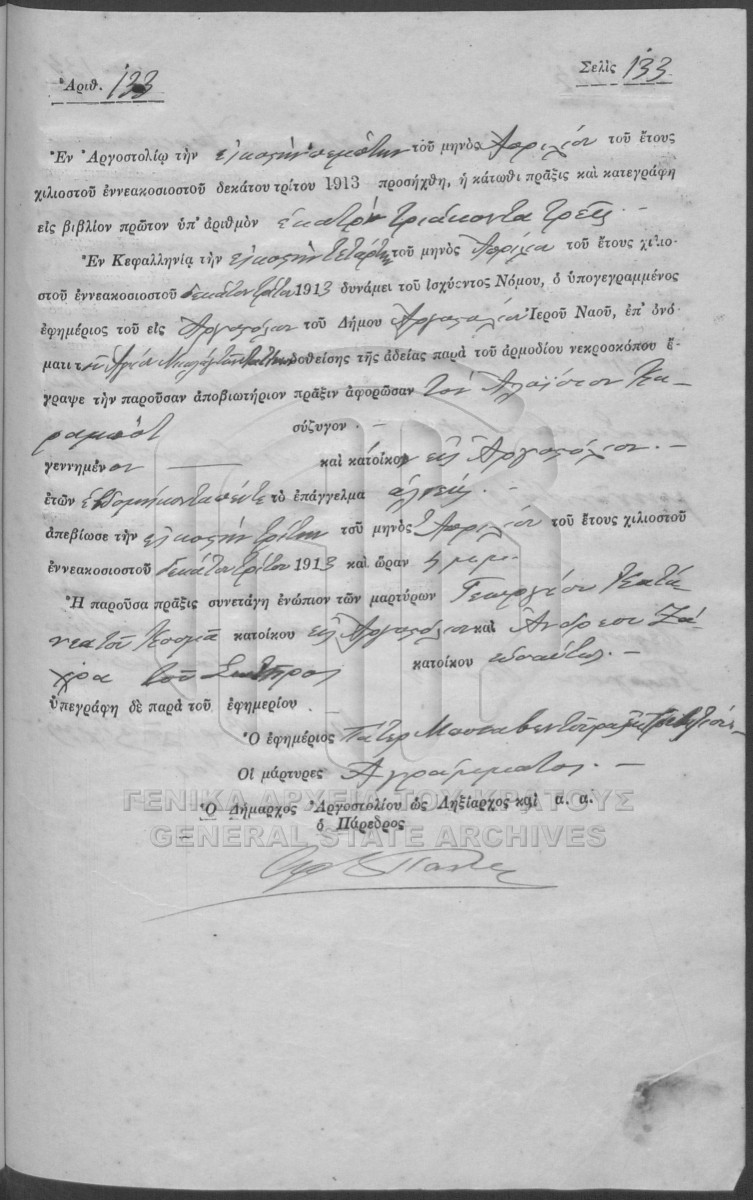 Ἀριθ. 133
Σελὶς 133
Ἐν Ἀργοστολίῳ τὴν εἰκοστὴν πέμπτην τοῦ μηνὸς Ἀπριλίου τοῦ ἔτους
χιλιοστοῦ ἐννεακοσιοστοῦ δεκάτου τρίτου 1913 προσήχθη, ἡ κάτωθι πρᾶξις καὶ κατεγράφη
εἰς βιβλίον πρῶτον ὑπ' ἀριθμὸν ἑκατὸν τριάκοντα τρεῖς.—
Ἐν Κεφαλληνίᾳ τὴν εἰκοστὴν τετάρτην τοῦ μηνὸς Ἀπριλίου τοῦ ἔτους χιλιο-
στοῦ ἐννεακοσιοστοῦ δεκάτου τρίτου 1913 δυνάμει τοῦ ἰσχύοντος Νόμου, ὁ ὑπογεγραμμένος
ἐφημέριος τοῦ εἰς Ἀργοστόλιον τοῦ Δήμου Ἀργοστολίου Ἱεροῦ Ναοῦ, ἐπ' ὀνό-
ματι τοῦ Ἁγίου δοθείσης τῆς ἀδείας παρὰ τοῦ ἁρμοδίου νεκροσκόπου ἔ-
γραψε τὴν παροῦσαν ἀποβιωτήριον πρᾶξιν ἀφορῶσαν τὸν
σύζυγον .—
γεννημένον — καὶ κατοίκου εἰς Ἀργοστόλιον.—
ἐτῶν ἑβδομήκοντα πέντε τὸ ἐπάγγελμα ἁλιεύς.—
ἀπεβίωσε τὴν εἰκοστὴν τρίτην τοῦ μηνὸς Ἀπριλίου τοῦ ἔτους χιλιοστοῦ
ἐννεακοσιοστοῦ δεκάτου τρίτου 1913 καὶ ὥραν μ.μ.—
Ἡ παροῦσα πρᾶξις συνετάγη ἐνώπιον τῶν μαρτύρων Γεωργίου
τοῦ Κοσμᾶ κατοίκου εἰς Ἀργοστόλιον καὶ Ἀνδρέου
τοῦ Σωτῆρος κατοίκου ὡσαύτως.—
ὑπεγράφη δὲ παρὰ τοῦ ἐφημερίου .—
Ὁ ἐφημέριος Πάτερ
Οἱ μάρτυρες Ἀγράμματοι.—
Ὁ Δήμαρχος Ἀργοστολίου ὡς Ληξίαρχος καὶ α. α.
ὁ Πάρεδρος
ΓΕΝΙΚΑ ΑΡΧΕΙΑ ΤΟΥ ΚΡΑΤΟΥΣ
GENERAL STATE ARCHIVES